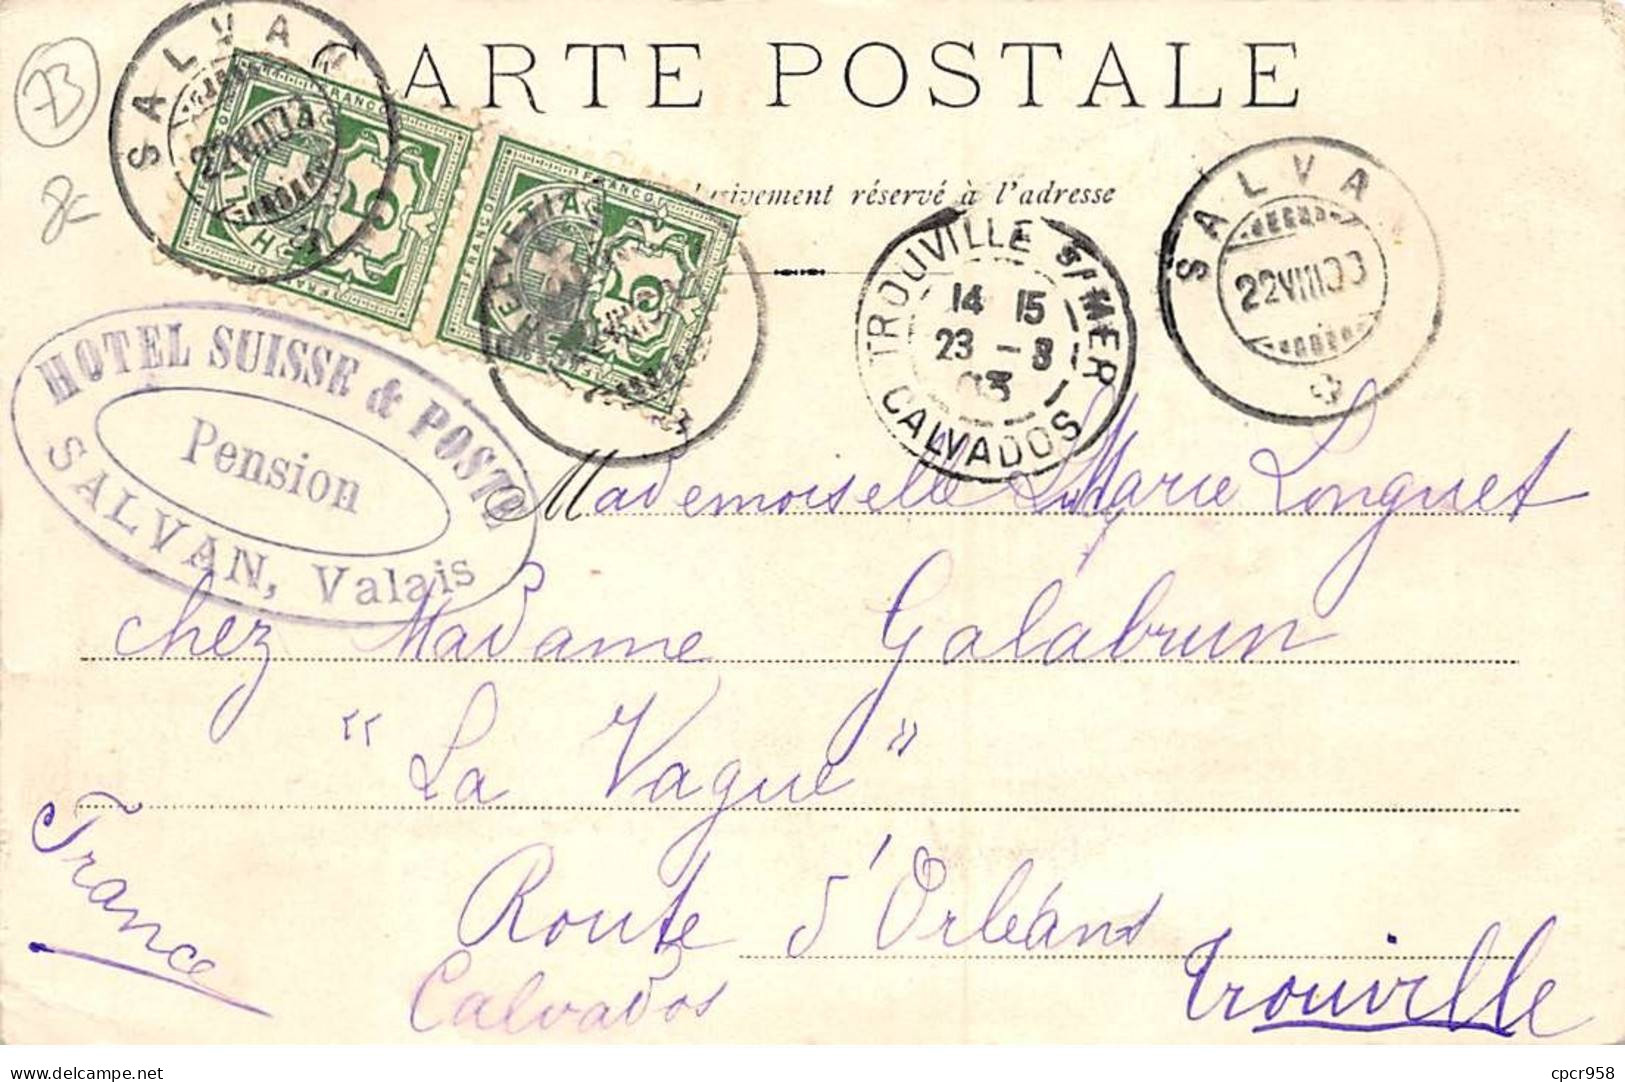 CARTE POSTALE
réservé à l'adresse
73
SALVAN
22VIII03
FRANCO
HELVETIA
5
FRANCO
HELVETIA
5
TROUVILLE S/MER
14 15
23 -8
03
CALVADOS
SALVAN
22VIII03
HOTEL SUISSE & POSTE
Pension
SALVAN, Valais
Mademoiselle Marie Longuet
chez Madame Galabrun
"La Vague"
Route d'Orléans
Trouville
Calvados
France
delcampe.net
cpcr958